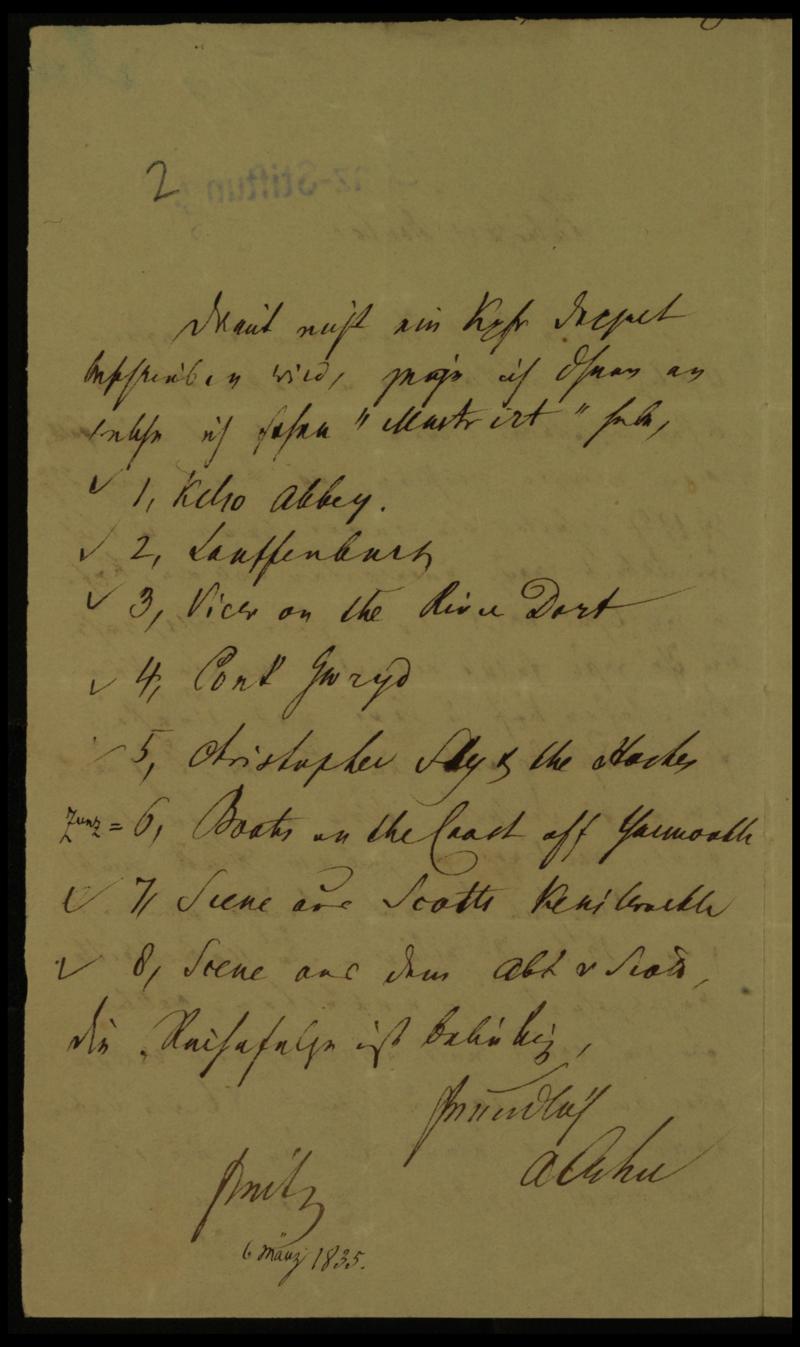 2
Damit nicht ein Kpfr doppelt
beschrieben wird, zeige ich Ihnen an
welche ich schon "illustrirt" habe,
✓ 1, Kelso Abbey.
✓ 2, Lauffenburg
✓ 3, View on the River Dort
✓ 4, Pont Gwryd
✓ 5, Christopher Sly & the Hostes
Zunz = 6, Boats on the Coast off Yarmouth
✓ 7, Scene aus Scotts Kenilworth
✓ 8, Scene aus dem Abt v Scott,
die Reihefolge ist beliebig,
freundlich
Freitg
6 März 1835.